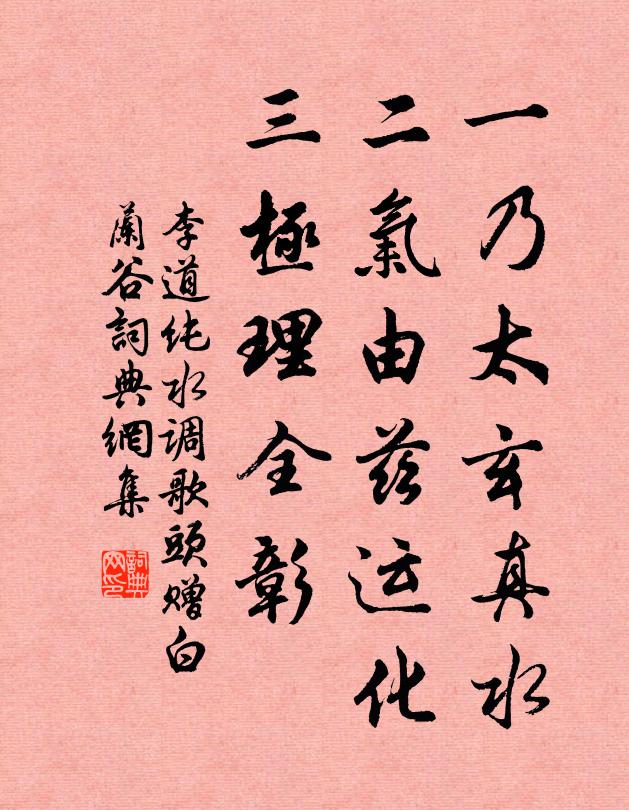 一乃太玄真水
二氣由兹运化
三極理全彰
李道纯水调歌頭赠白
蘭谷詞典網集
詞典
网印